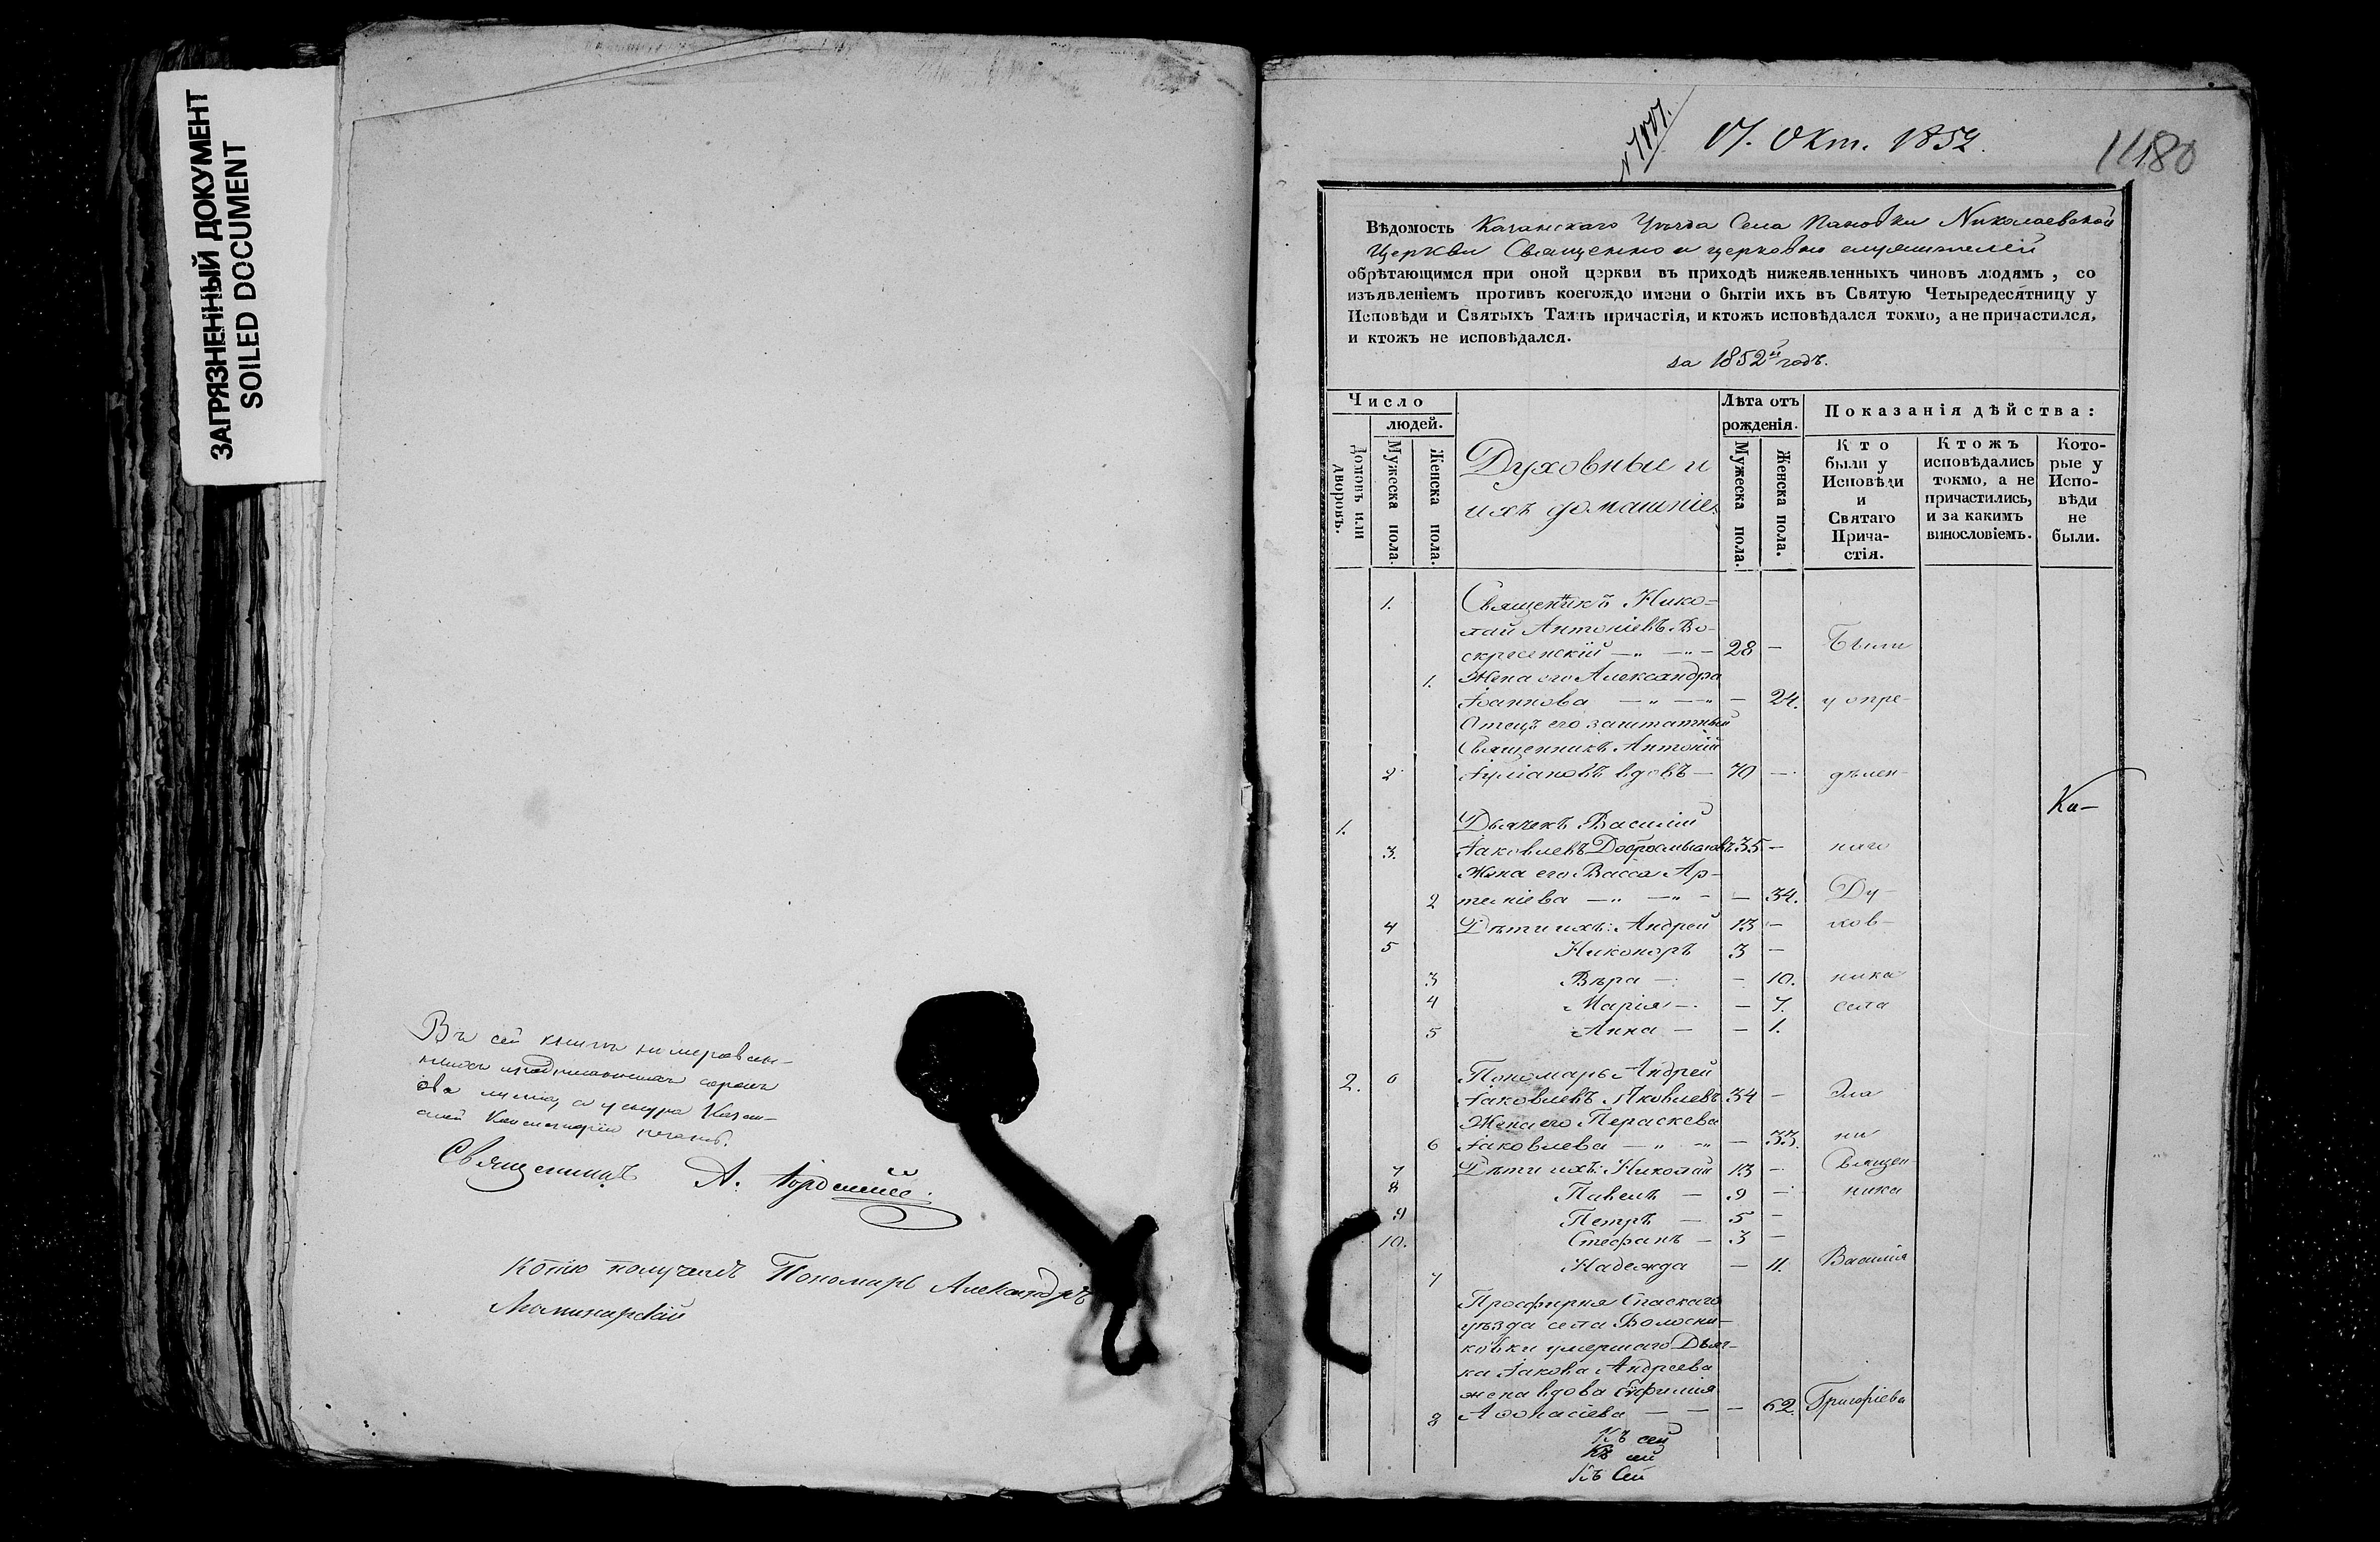 ЗАГРЯЗНЕННЫЙ ДОКУМЕНТ
SOILED DOCUMENT
Въ сей книгѣ нумерован-
сорокъ
два листа, Казан-
ской Консисторіи печать.
Священникъ А.
Копію получилъ Пономарь Александръ
17. Окт. 1852.
1180
Вѣдомость Казанскаго Уѣзда Села Пановки Николаевской
Церкви Священно и церковно служителей
обрѣтающимся при оной церкви въ приходѣ нижеявленныхъ чиновъ людямъ, со
изъявленіемъ противъ коегождо имени о бытіи ихъ въ Святую Четыредесятницу у
Исповѣди и Святыхъ Таинъ причастія, и ктожъ исповѣдался токмо, а не причастился,
и ктожъ не исповѣдался.
за 1852й годъ.
Число
людей.
Домовъ или дворовъ.
Мужеска пола.
Женска пола.
Духовные и
ихъ домашніе.
Лѣта отъ
рожденія.
Мужеска пола.
Женска пола.
Показанія дѣйства:
Кто
были у
Исповѣди
и
Святаго
Прича-
стія.
Ктожъ
исповѣдались
токмо, а не
причастились,
и за какимъ
винословіемъ.
Кото-
рые у
Испо-
вѣди
не
были.
1. Священникъ Нико=
лай Антоніевъ Во-
скресенскій —„ —„— 28 — Были
1. Жена его Александра
Іоаннова —„ —„ — 24. у опре-
Отецъ его заштатный
Священникъ Антоній
2 Іуліановъ вдовъ — 70 — дѣлен-
Ка-
1. Дьячекъ Василій
3. Іаковлевъ Добросмысловъ 35 — наго
Жена его Васса Ар-
2 теміева —„ —„ - — 34. Ду-
4 Дѣти ихъ: Андрей 13 — хов-
5 Никоноръ 3 —
3 Вѣра — — 10. ника
4 Марія — — 7. села
5 Анна — — 1.
2. 6 Пономарь Андрей
Іаковлевъ Яковлевъ 34 — Эла
Жена его Пераскева
6 Іаковлева —„ —„ — 33. ни
7 Дѣти ихъ: Николай 13 — Священ-
8 Павелъ — 9 — ника
9 Петръ — 5 —
10. Стефанъ — 3 —
7 Надежда — 11. Василія
Просфирня Спаскаго
уѣзда села Волосни-
ковки умершаго Дьяч-
ка Іакова Андреева
жена вдова Евфимія
8 Аѳонасіева — — — 62. Григоріева
Къ сей
Къ сей
Къ Сей